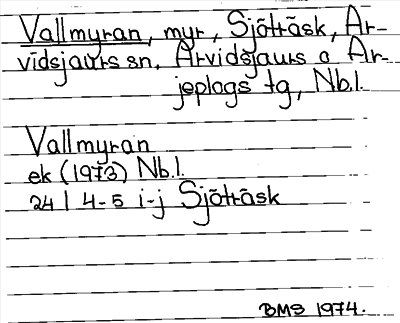 Vallmyran, myr, Sjötträsk, Ar-
vidsjaurs sn, Arvidsjaurs o Ar-
jeplogs tg, Nb.l.
Vallmyran
ek (1973) Nb.l.
24 I 4-5 i-j Sjötträsk
BMS 1974.